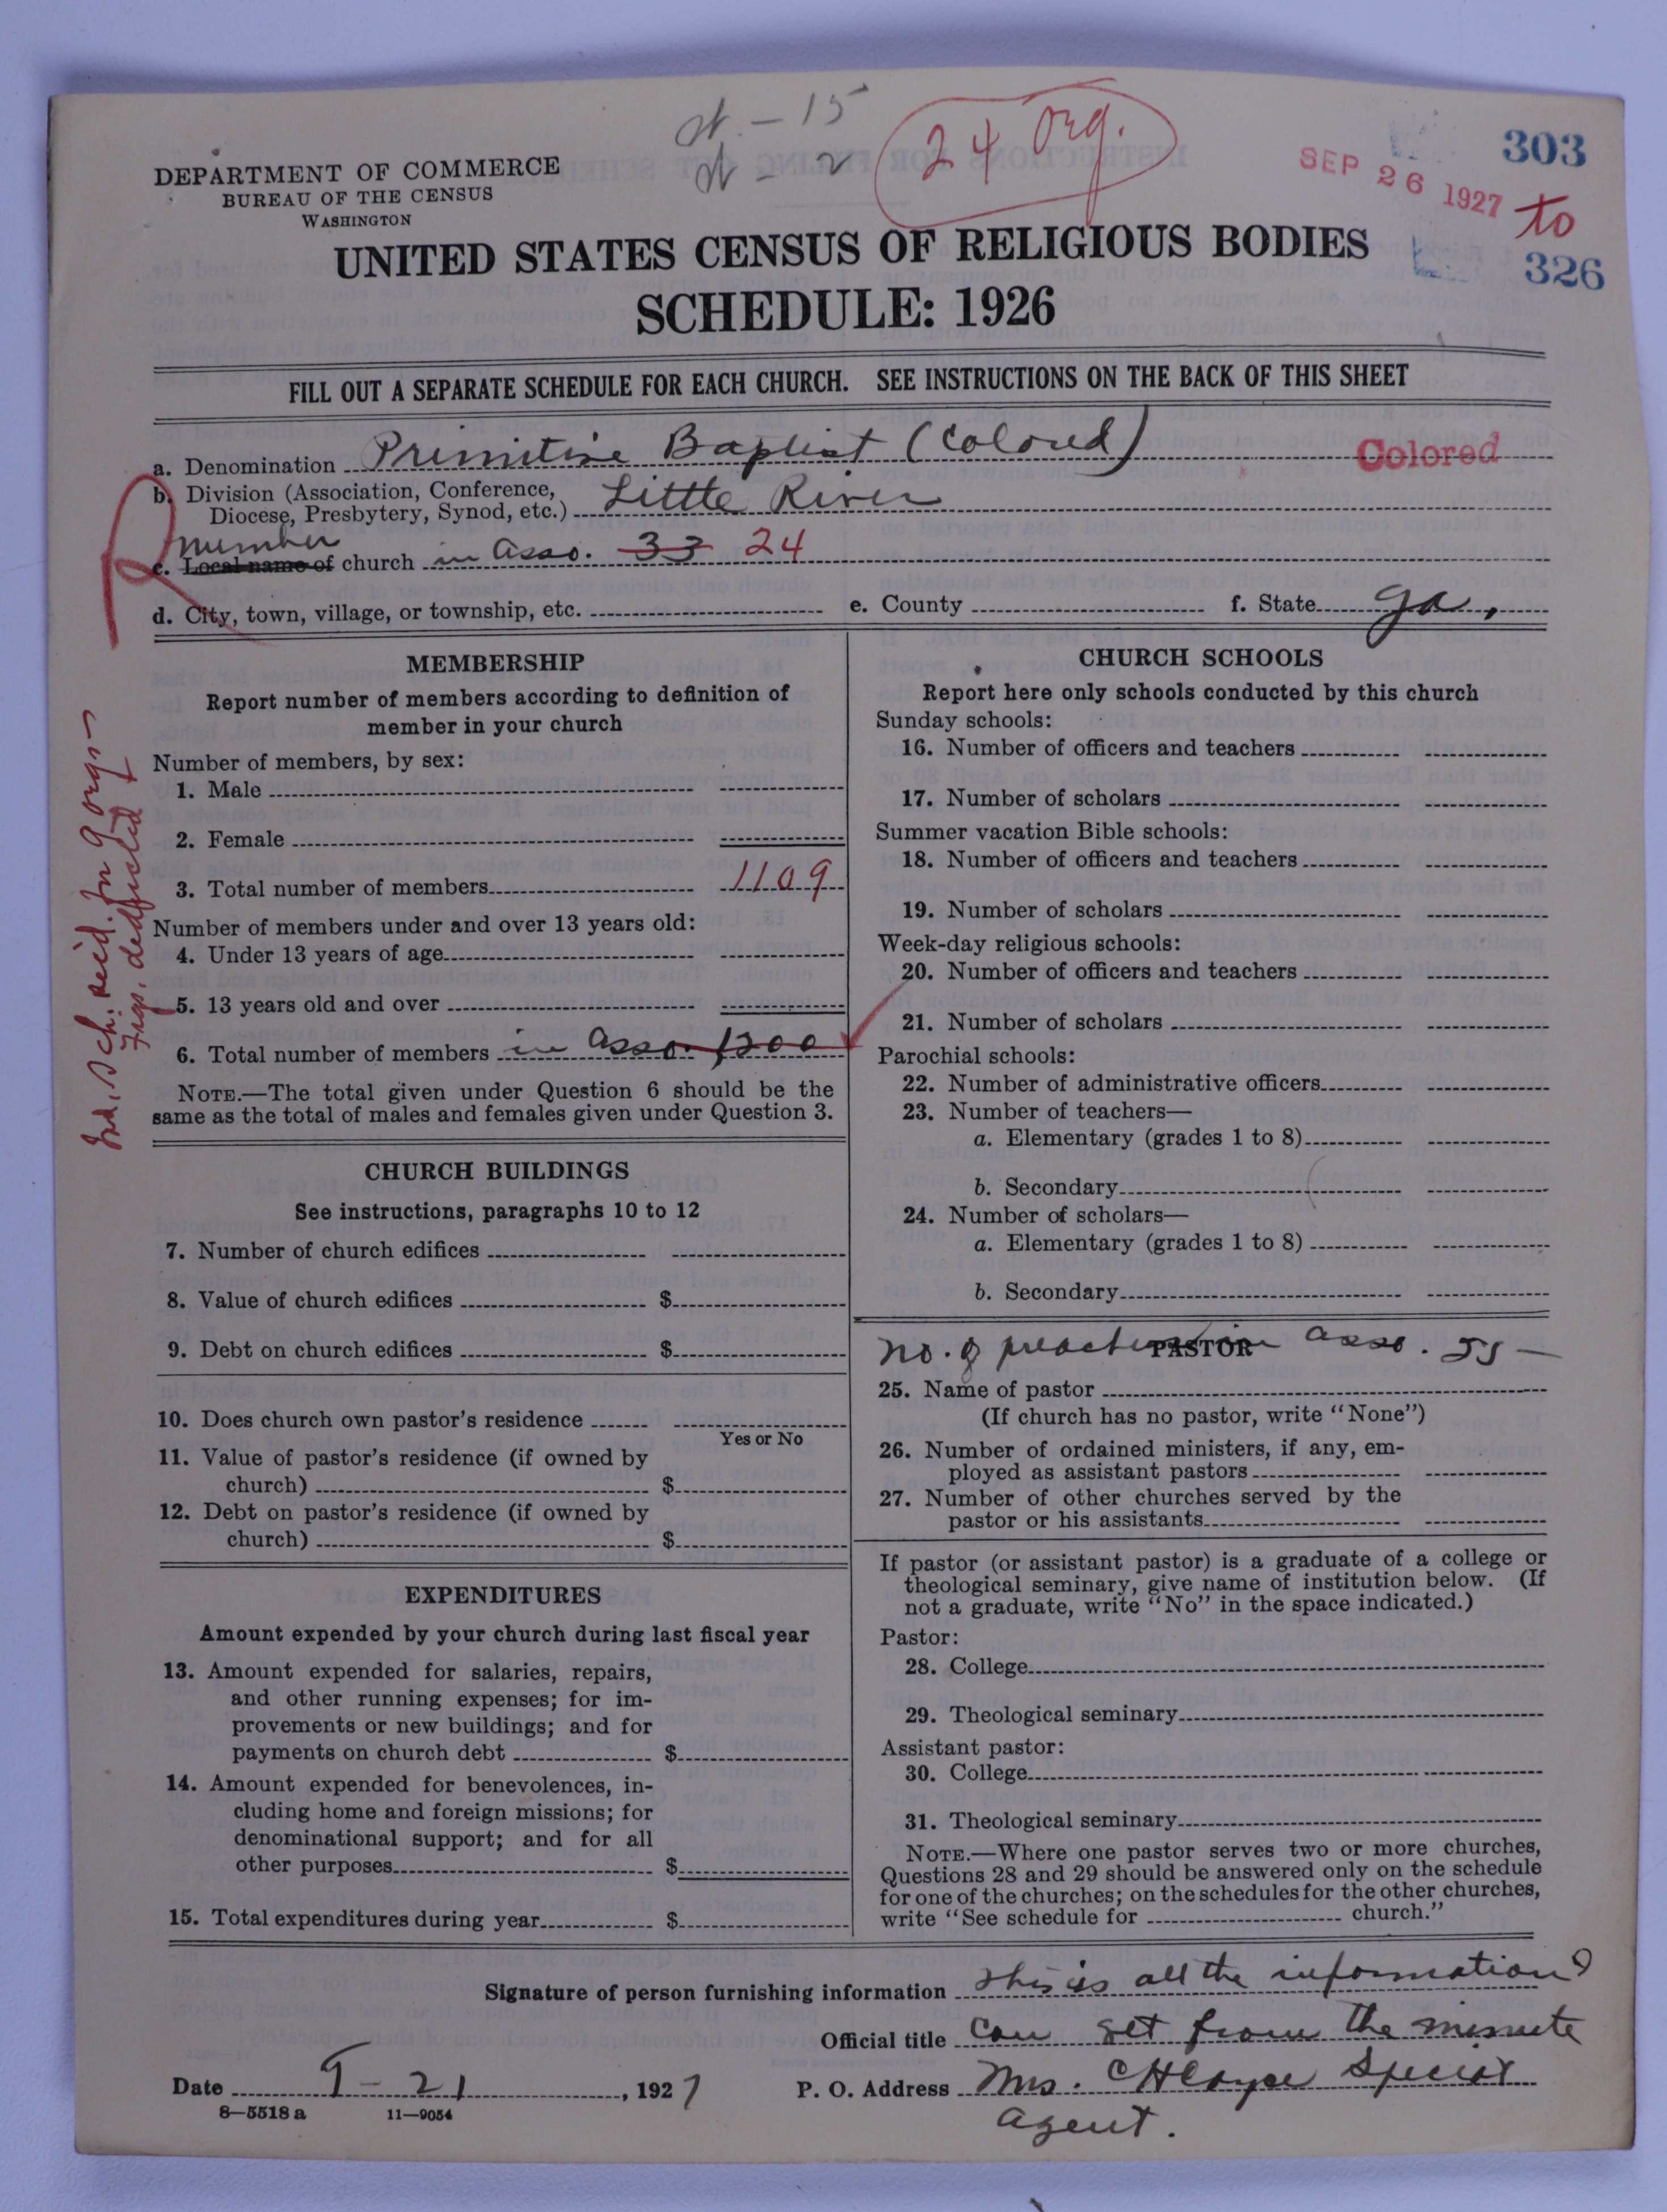 303
SEP 26 1927 to
326
24 org.
- 15
- 2
DEPARTMENT OF COMMERCE
BUREAU OF THE CENSUS
WASHINGTON
UNITED STATES CENSUS OF RELIGIOUS BODIES
SCHEDULE: 1926
FILL OUT A SEPARATE SCHEDULE FOR EACH CHURCH. SEE INSTRUCTIONS ON THE BACK OF THIS SHEET
a. Denomination Primitive Baptist (Colored) Colored
b. Division (Association, Conference,
Diocese, Presbytery, Synod, etc.) Little River
number
c. Local name of church in Asso. 33 24
d. City, town, village, or township, etc. e. County f. State Ga.
MEMBERSHIP
Report number of members according to definition of
member in your church
Number of members, by sex:
1. Male
2. Female
3. Total number of members 1109
Number of members under and over 13 years old:
4. Under 13 years of age
5. 13 years old and over
6. Total number of members in Asso. 1200
NOTE.—The total given under Question 6 should be the
same as the total of males and females given under Question 3.
Ind. Sch. recd. for 9 orgs—
Figs. deducted
CHURCH BUILDINGS
See instructions, paragraphs 10 to 12
7. Number of church edifices
8. Value of church edifices $
9. Debt on church edifices $
10. Does church own pastor's residence
Yes or No
11. Value of pastor's residence (if owned by
church) $
12. Debt on pastor's residence (if owned by
church) $
EXPENDITURES
Amount expended by your church during last fiscal year
13. Amount expended for salaries, repairs,
and other running expenses; for im-
provements or new buildings; and for
payments on church debt $
14. Amount expended for benevolences, in-
cluding home and foreign missions; for
denominational support; and for all
other purposes $
15. Total expenditures during year $
CHURCH SCHOOLS
Report here only schools conducted by this church
Sunday schools:
16. Number of officers and teachers
17. Number of scholars
Summer vacation Bible schools:
18. Number of officers and teachers
19. Number of scholars
Week-day religious schools:
20. Number of officers and teachers
21. Number of scholars
Parochial schools:
22. Number of administrative officers
23. Number of teachers—
a. Elementary (grades 1 to 8)
b. Secondary
24. Number of scholars—
a. Elementary (grades 1 to 8)
b. Secondary
PASTOR
no. of preachers in asso.
25. Name of pastor
(If church has no pastor, write "None")
26. Number of ordained ministers, if any, em-
ployed as assistant pastors
27. Number of other churches served by the
pastor or his assistants
If pastor (or assistant pastor) is a graduate of a college or
theological seminary, give name of institution below. (If
not a graduate, write "No" in the space indicated.)
Pastor:
28. College
29. Theological seminary
Assistant pastor:
30. College
31. Theological seminary
NOTE.—Where one pastor serves two or more churches,
Questions 28 and 29 should be answered only on the schedule
for one of the churches; on the schedules for the other churches,
write "See schedule for church."
Signature of person furnishing information This is all the information I
Official title can get from the minute
Date 9-21, 1927 P. O. Address Mrs. C H Cayce Special
agent.
8—5518 a 11—9054